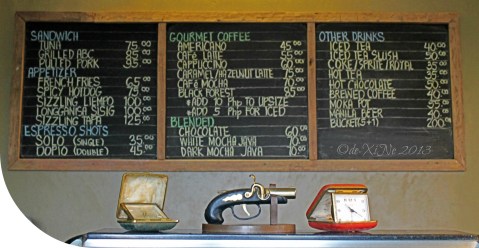 SANDWICH
TUNA 75.00
GRILLED ABC 95.00
PULLED PORK 95.00
APPETIZER
FRENCH FRIES 65.00
SPICY HOTDOG 75.00
SIZZLING TEMPO 100.00
LONGGANISA SISIG 100.00
SIZZLING TAPA 125.00
ESPRESSO SHOTS
SOLO (SINGLE) 25.00
DOPIO (DOUBLE) 45.00
GOURMET COFFEE
AMERICANO 45.00
CAFE LATTE 55.00
CAPPUCCINO 60.00
CARAMEL/HAZELNUT LATTE 75.00
CAFÉ MOCHA
BLACK FOREST 95.00
*ADD 10 PhP TO UPSIZE
*ADD 5 PhP FOR ICED
BLENDED
CHOCOLATE 60.00
WHITE MOCHA JAVA
DARK MOCHA JAVA
OTHER DRINKS
ICED TEA 40.00
ICED TEA SLUSH 50.00
COKE/SPRITE/ROYAL
HOT TEA
HOT CHOCOLATE
BREWED COFFEE 40.00
MOKA POT
MANILA BEER 40.00
BUCKET(5+1) 200.00
©de Xi Ne 2013